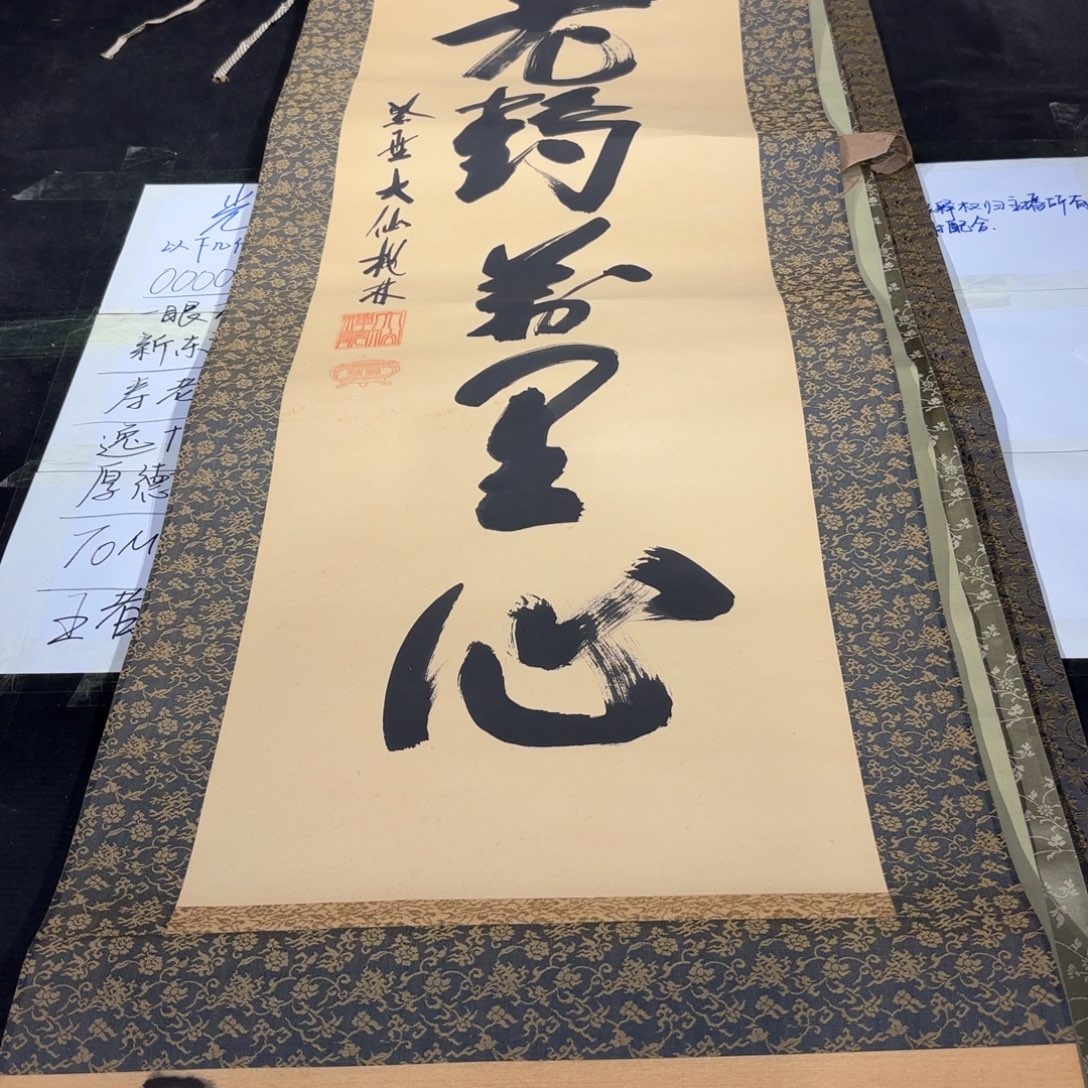 老鶴萬里心
紫野大仙桃林
以下几
0000
一眼
新东
寿老
逸
厚德
TOM
王者
释权归主播所有
配合.